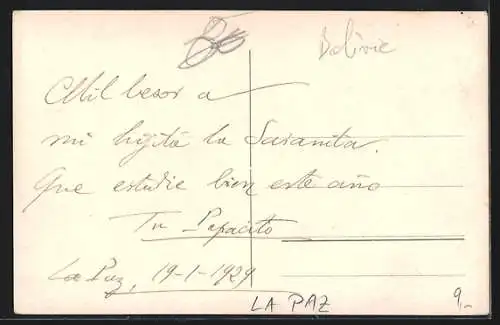 Bolivie
Mil besos a
mi hijita la Saranita.
Que estudie bien este año
Tu Papacito
La Paz, 19-1-1929
LA PAZ
9,-